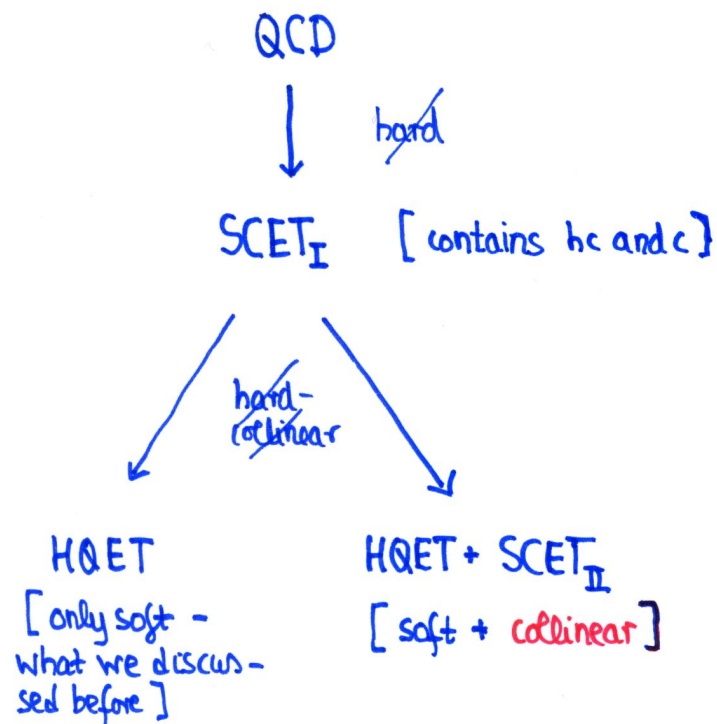 QCD
hard
SCET_I [contains hc and c]
hard-
collinear
HQET
[only soft -
what we discus-
sed before]
HQET + SCET_II
[soft + collinear]